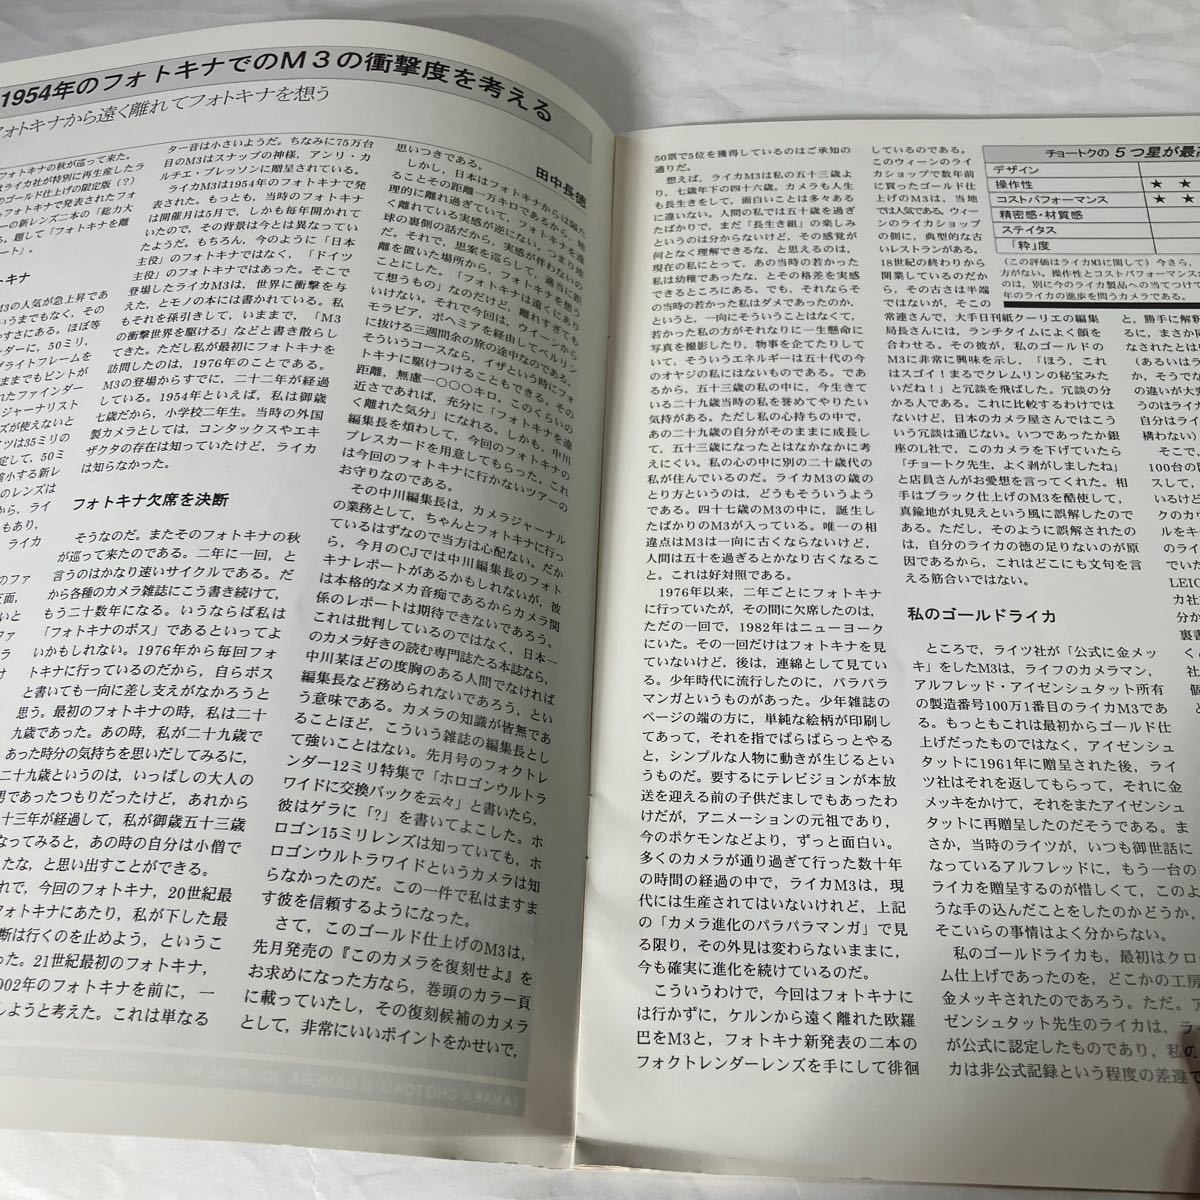 1954年のフォトキナでのM3の衝撃度を考える
フォトキナから遠く離れてフォトキナを想う
田中長徳
フォトキナの秋が巡って来た。
ライカ社が特別に再生産したラ
のゴールド仕上げの限定版（？）
フォトキナで発表されたフォ
ーの新レンズ二本の「総力大
る。題して「フォトキナを離
ート」。
トキナ
M3の人気が急上昇であ
いうまでもなく、その
やすさにある。ほぼ等
ンダーに、50ミリ、
ブライトフレームを
ままでもピントが
れたファインダー
ジャーナリスト
ズが使えないと
イツは35ミリの
定して、50ミ
縮小する新レ
のレンズは
から、ライ
もあり、
ライカ
のファ
正面、
いと
ファ
ラ
け
ター音は小さいようだ。ちなみに75万台
目のM3はスナップの神様，アンリ・カ
ルチェ・ブレッソンに贈呈されている。
ライカM3は1954年のフォトキナで発
表された。もっとも，当時のフォトキナ
は開催月は5月で，しかも毎年開かれて
いたので，その背景は今とは異なってい
たようだ。もちろん，今のように「日本
主役」のフォトキナではなく，「ドイツ
主役」のフォトキナではあった。そこで
登場したライカM3は，世界に衝撃を与
えた，とモノの本には書かれている。私
もそれを孫引きして，いままで，「M3
の衝撃世界を駆ける」などと書き散らし
てきた。ただし私が最初にフォトキナを
訪問したのは，1976年のことである。
M3の登場からすでに，二十二年が経過
している。1954年といえば，私は御歳
七歳だから，小学校二年生。当時の外国
製カメラとしては，コンタックスやエキ
ザクタの存在は知っていたけど，ライカ
は知らなかった。
フォトキナ欠席を決断
そうなのだ。またそのフォトキナの秋
が巡って来たのである。二年に一回，と
言うのはかなり速いサイクルである。だ
から各種のカメラ雑誌にこう書き続けて，
もう二十数年になる。いうならば私は
「フォトキナのボス」であるといってよ
いかもしれない。1976年から毎回フォ
トキナに行っているのだから，自らボス
と書いても一向に差し支えがなかろうと
思う。最初のフォトキナの時，私は二十
九歳であった。あの時，私が二十九歳で
あった時分の気持ちを思いだしてみるに，
二十九歳というのは，いっぱしの大人の
男であったつもりだったけど，あれから
十三年が経過して，私が御歳五十三歳
なってみると，あの時の自分は小僧で
たな，と思い出すことができる。
れで，今回のフォトキナ，20世紀最
フォトキナにあたり，私が下した最
断は行くのを止めよう，というこ
った。21世紀最初のフォトキナ，
002年のフォトキナを前に，一
しようと考えた。これは単なる
思いつきである。
しかし，日本はフォトキナからは隔た
ることその距離一万キロであるから，地
理的に離れ過ぎていて，フォトキナを遠
く離れている実感が逆にない。つまり地
球の裏側の話だから，実感が伴わないの
だ。それで，思案を巡らして，適当に距
離を置いた場所から，フォトキナを想う
ことにした。「フォトキナは遠くにあり
て想うもの」なのだけど，離れすぎても
いけない。それで今回は，ウイーンから
モラビア，ボヘミアを経由してベルリン
に抜ける三週間余の旅の途中なのである。
そういうコースなら，イザという時にフォ
トキナに駆けつけることもできる。その
距離，無慮一〇〇〇キロ。このくらいの
近さであれば，充分に「フォトキナを遠
く離れた気分」になれる。しかも，中川
編集長を煩わして，今回のフォトキナの
プレスカードを用意してもらった。これ
は今回のフォトキナに行かないツアーの
お守りなのである。
その中川編集長は，カメラジャーナル
の業務として，ちゃんとフォトキナに行っ
ているはずなので当方は心配ない。だか
ら，今月のCJでは中川編集長のフォト
キナレポートがあるかもしれないが，彼
は本格的なメカ音痴であるからカメラ関
係のレポートは期待できないであろう。
これは批判しているのではなく，日本一
のカメラ好きの読む専門誌たる本誌なら，
中川某ほどの度胸のある人間でなければ
編集長など務められないであろう，とい
う意味である。カメラの知識が皆無であ
ることほど，こういう雑誌の編集長とし
て強いことはない。先月号のフォクトレ
ンダー12ミリ特集で「ホロゴンウルトラ
ワイドに交換バックを云々」と書いたら，
彼はゲラに「？」を書いてよこした。ホ
ロゴン15ミリレンズは知っていても，ホ
ロゴンウルトラワイドというカメラは知
らなかったのだ。この一件で私はますま
す彼を信頼するようになった。
さて，このゴールド仕上げのM3は，
先月発売の『このカメラを復刻せよ』を
お求めになった方なら，巻頭のカラー頁
に載っていたし，その復刻候補のカメラ
として，非常にいいポイントをかせいで，
50票で5位を獲得しているのはご承知の
通りだ。
想えば，ライカM3は私の五十三歳よ
り，七歳年下の四十六歳。カメラも人生
も長生きをして，面白いことは多々ある
に違いない。人間の私では五十歳を過ぎ
たばかりで，まだ「長生き組」の楽しみ
というのは分からないけど，その感覚が
何となく理解できるな，と思えるのは，
現在の私にとって，あの当時の若かった
私は幼稚であったな，とその格差を実感
できるところにある。でも，それならそ
の当時の若かった私はダメであったのか，
というと，一向にそういうことはなくて，
若かった私の方がそれなりに一生懸命に
写真を撮影したり，物事を企てたりして
いて，そういうエネルギーは五十代の今
のオヤジの私にはないものである。であ
るから，五十三歳の私の中に，今生きて
いる二十九歳当時の私を誉めてやりたい
気持がある。ただし私の心持ちの中で，
あの二十九歳の自分がそのままに成長し
て，五十三歳になったとはなかなかに考
えにくい。私の心の中に別の二十歳代の
私が住んでいるのだ。ライカM3の歳の
とり方というのは，どうもそういうよう
である。四十七歳のM3の中に，誕生し
たばかりのM3が入っている。唯一の相
違点はM3は一向に古くならないけど，
人間は五十を過ぎるとかなり古くなるこ
と。これは好対照である。
1976年以来，二年ごとにフォトキナ
に行っていたが，その間に欠席したのは，
ただの一回で，1982年はニューヨーク
にいた。その一回だけはフォトキナを見
ていないけど，後は，連綿として見てい
る。少年時代に流行したのに，パラパラ
マンガというものがあった。少年雑誌の
ページの端の方に，単純な絵柄が印刷し
てあって，それを指でぱらぱらっとやる
と，シンプルな人物に動きが生じるとい
うものだ。要するにテレビジョンが本放
送を迎える前の子供だましでもあったわ
けだが，アニメーションの元祖であり，
今のポケモンなどより，ずっと面白い。
多くのカメラが通り過ぎて行った数十年
の時間の経過の中で，ライカM3は，現
代には生産されてはいないけれど，上記
の「カメラ進化のパラパラマンガ」で見
る限り，その外見は変わらないままに，
今も確実に進化を続けているのだ。
こういうわけで，今回はフォトキナに
は行かずに，ケルンから遠く離れた欧羅
巴をM3と，フォトキナ新発表の二本の
フォクトレンダーレンズを手にして徘徊
しているのである。
このウィーンのライ
カショップで数年前
に買ったゴールド仕
上げのM3は，当地
では人気である。ウィー
ンのライカショップ
の側に，典型的な古
いレストランがある。
18世紀の終わりから
開業しているのだか
ら，その古さは半端
ではないが，そこの
常連さんで，大手日刊紙クーリエの編集
局長さんには，ランチタイムによく顔を
合わせる。その彼が，私のゴールドの
M3に非常に興味を示し，「ほう，これ
はスゴイ！まるでクレムリンの秘宝みた
いだね！」と冗談を飛ばした。冗談の分
かる人である。これに比較するわけでは
ないけど，日本のカメラ屋さんではこう
いう冗談は通じない。いつであったか銀
座のL社で，このカメラを下げていたら
「チョートク先生，よく剥がしましたね」
と店員さんがお愛想を言ってくれた。相
手はブラック仕上げのM3を酷使して，
真鍮地が丸見えという風に誤解したので
ある。ただし，そのように誤解されたの
は，自分のライカの徳の足りないのが原
因であるから，これはどこにも文句を言
える筋合いではない。
私のゴールドライカ
ところで，ライツ社が「公式に金メッ
キ」をしたM3は，ライフのカメラマン，
アルフレッド・アイゼンシュタット所有
の製造番号100万1番目のライカM3であ
る。もっともこれは最初からゴールド仕
上げだったものではなく，アイゼンシュ
タットに1961年に贈呈された後，ライ
ツ社はそれを返してもらって，それに金
メッキをかけて，それをまたアイゼンシュ
タットに再贈呈したのだそうである。ま
さか，当時のライツが，いつも御世話に
なっているアルフレッドに，もう一台の
ライカを贈呈するのが惜しくて，このよ
うな手の込んだことをしたのかどうか，
そこいらの事情はよく分からない。
私のゴールドライカも，最初はクロー
ム仕上げであったのを，どこかの工房
金メッキされたのであろう。ただ，ア
ゼンシュタット先生のライカは，ラ
が公式に認定したものであり，私の
カは非公式記録という程度の差違で
チョートクの 5つ星が最高
デザイン
操作性 ★ ★
コストパフォーマンス ★ ★
精密感・材質感
ステイタス
「粋」度
（この評価はライカM3に関して）今さら，
方がない。操作性とコストパフォーマンス
のは，別に今のライカ製品への当てつけで
年のライカの進歩を問うカメラである。
と，勝手に解釈
るに，まさかな
なされたとはい
（あるいはラ
か，そうでな
の違いが大変
うのはライカ
自分はライカ
構わない）
そこで，
100台の
スして，
いるけど
クのカウ
ルをキ
のライ
でいた
LEIC
カ社
分か
裏書
くる
社
個
の